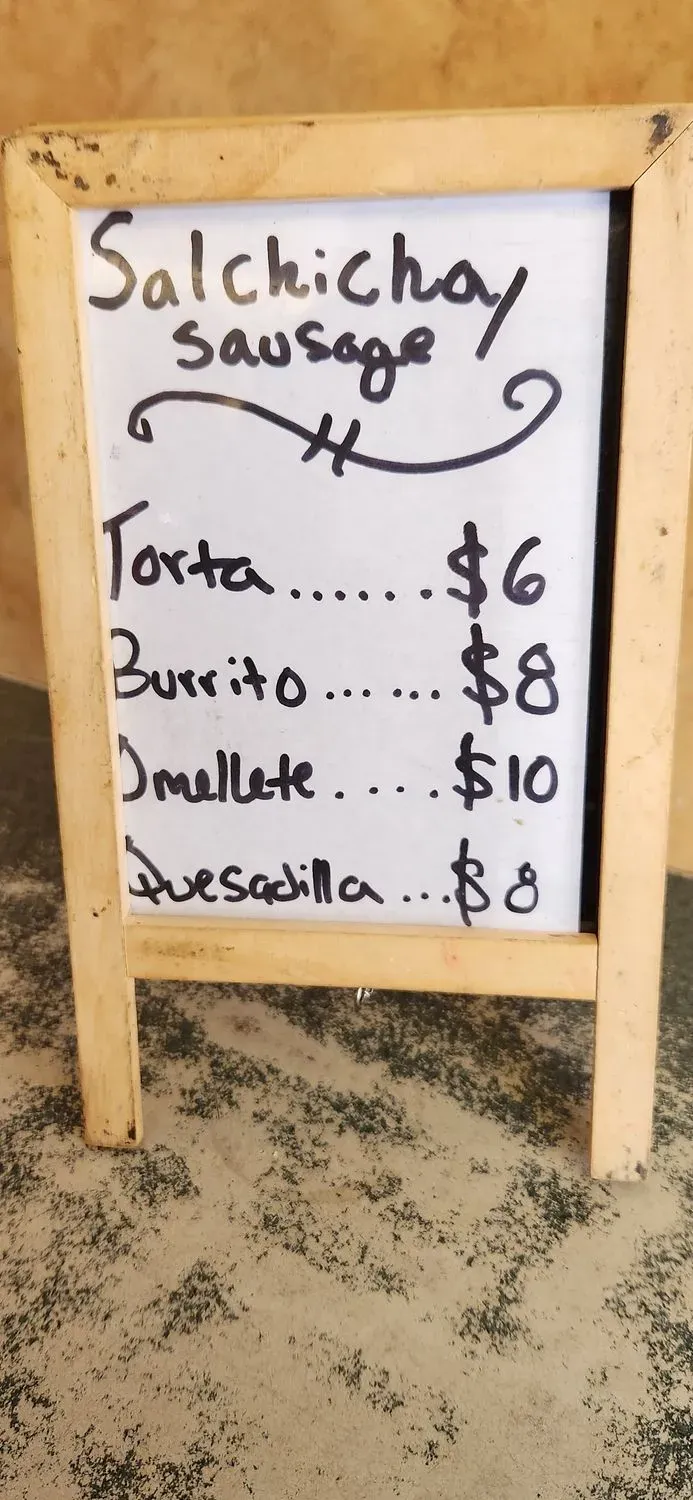 Salchicha/
sausage
Torta......$6
Burrito......$8
Omellete....$10
Quesadilla...$8